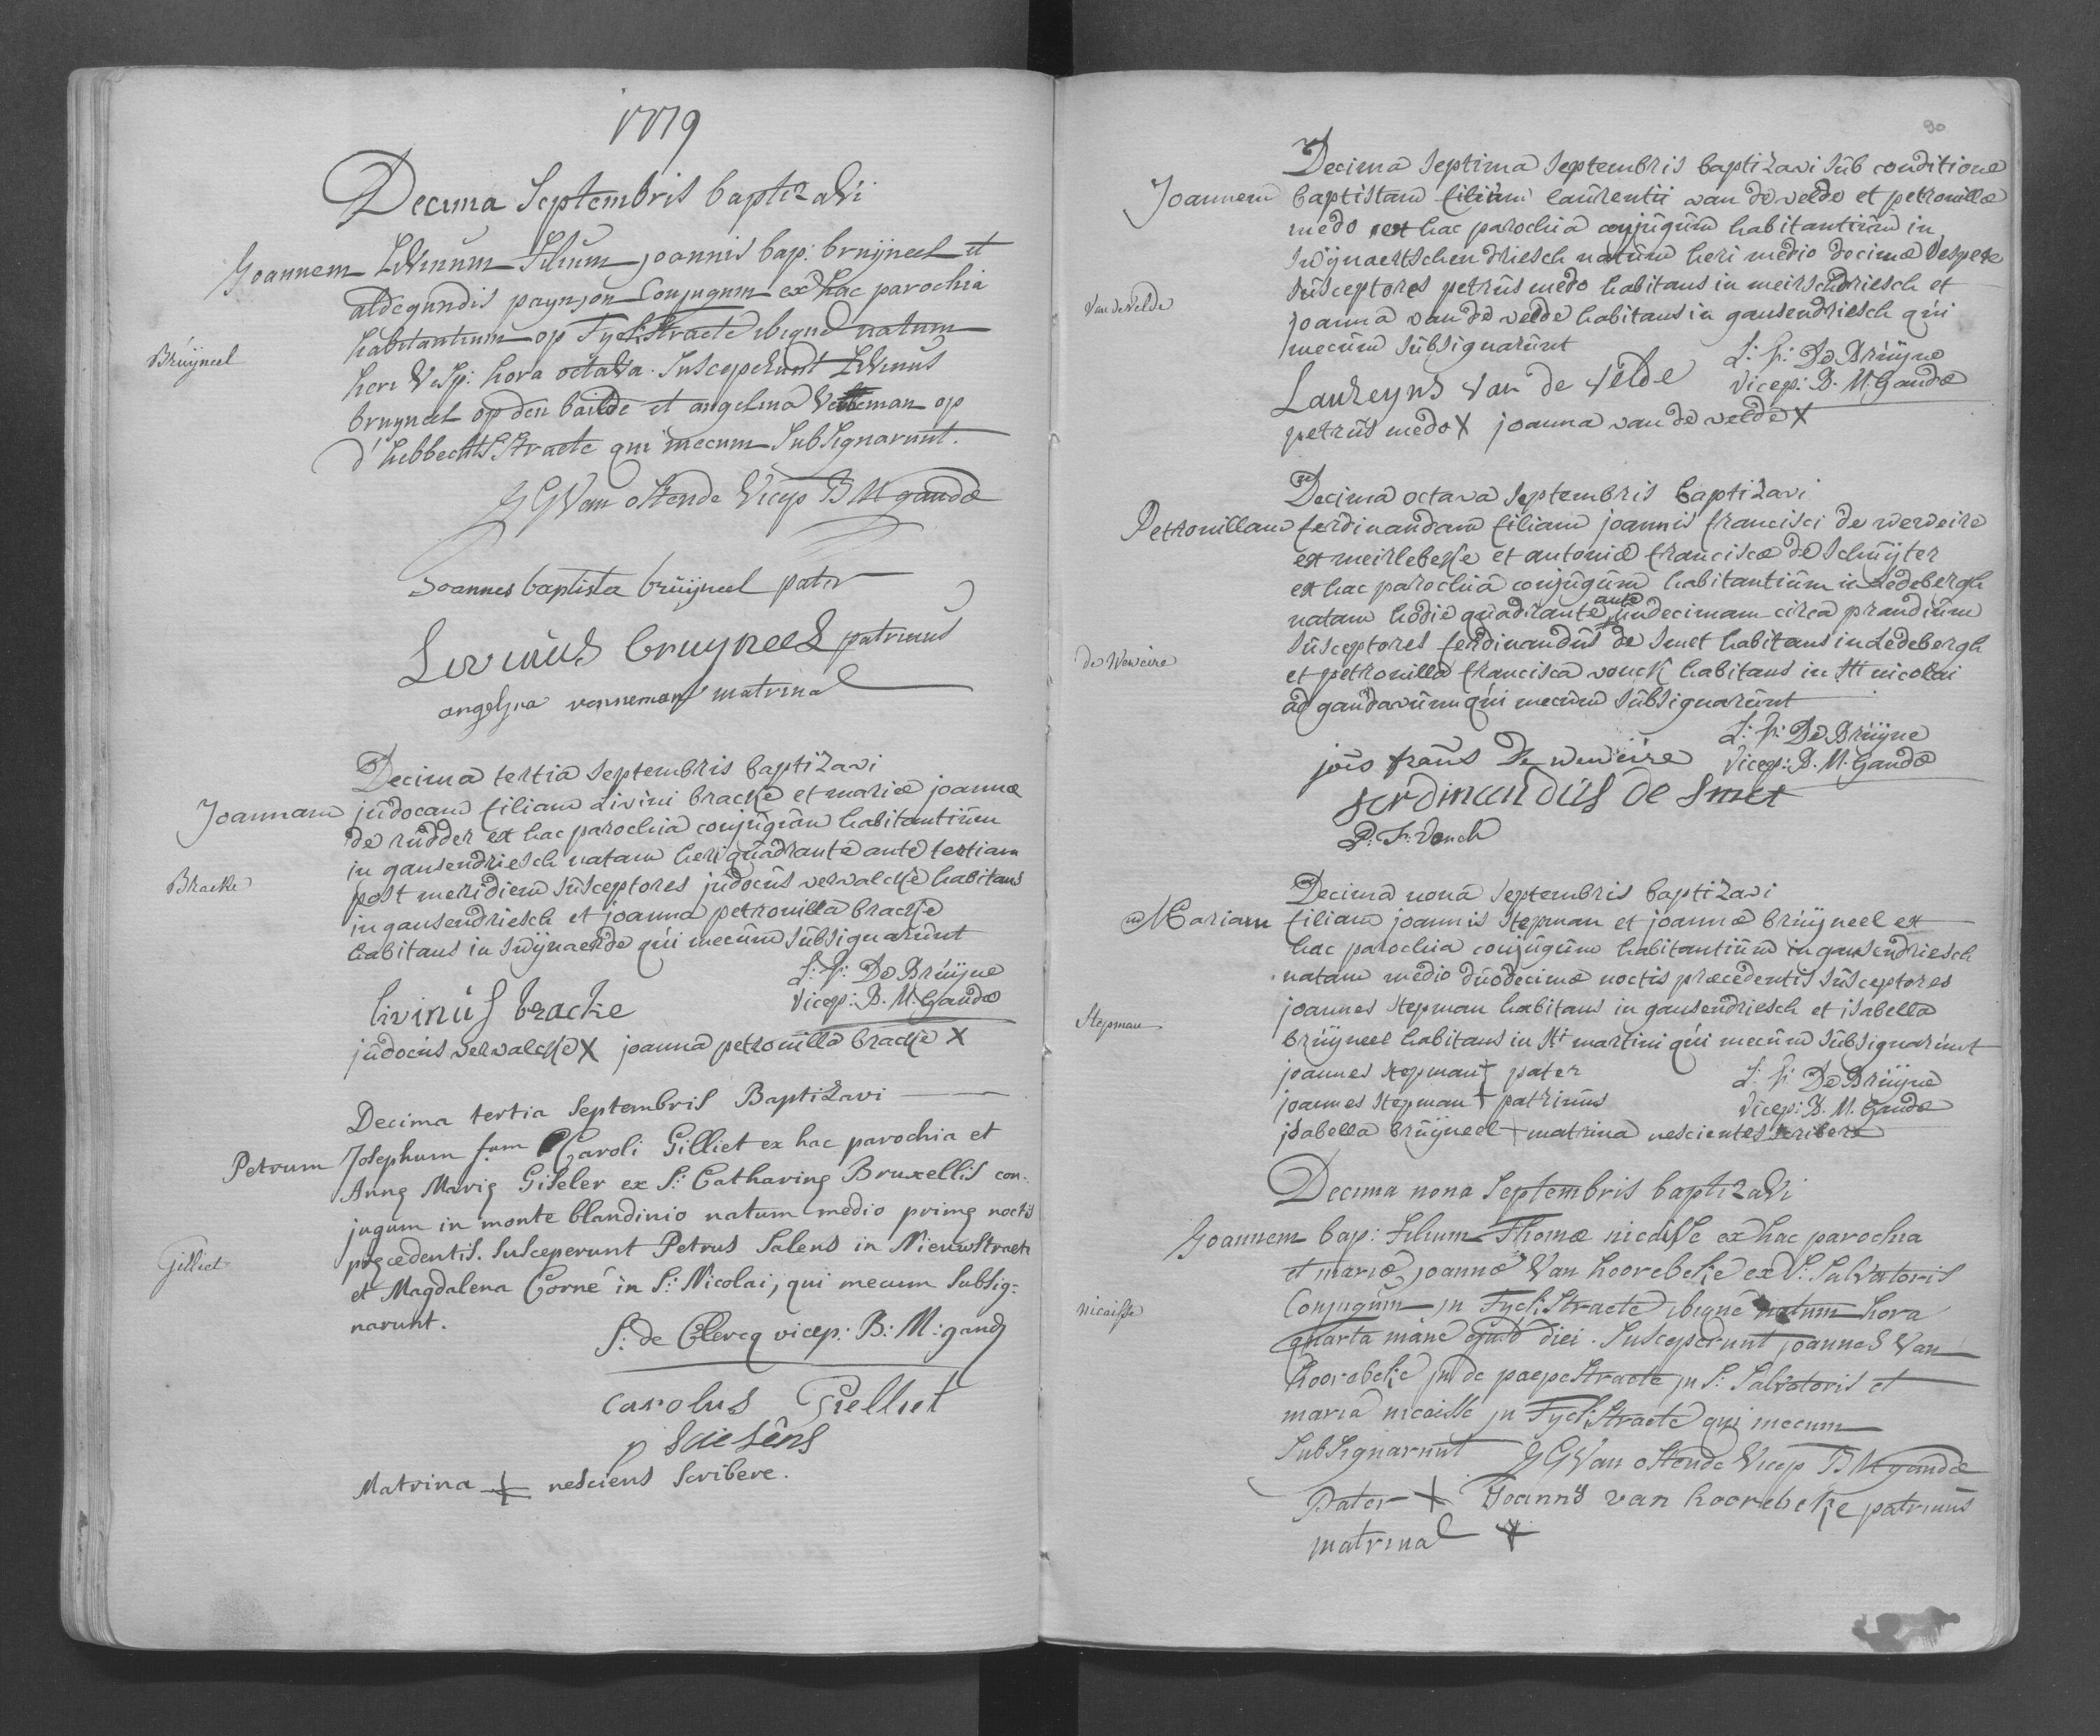 1779
Decima Septembris baptizavi
Joannem Livinum Filium joannis bap: bruijneel et
aldegundis paynjon Conjugum ex hac parochia
habitantium op Fyck:Straete ibique natum
heri Vesp: hora octava. Susceperunt Livinus
Brúijneel
bruyneel op den briel et angelina op
d'hebbechts Straete qui mecum Subsignarunt.
J G Van oStende Vicep B M gandæ
Joannes baptista brúijneel pater
Livinus bruyneel patrinus
angelina venneman matrina
Decima tertia Septembris baptizavi
Joannam júdocam filiam Livini bracke et mariæ joannæ
de rúdder ex hac parochia conjúgúm habitantiúm
in gansendriesch natam heri qúadrante ante tertiam
Bracke
post meridiem súsceptores júdocús verwalcke habitans
in gansendriesch et joanna petronilla bracke
habitans in Swijnaerde qúi mecúm súbsignarúnt
L: F: De Brúijne
vicep: B. M. Gandæ
livinús bracke
júdocús verwalcke X joanna petronilla bracke X
Decima tertia Septembris Baptizavi
Petrum Josephum f.um Caroli Gilliet ex hac parochia et
Annę Marię Giseler ex S: Catharinę Bruxellis con-
jugum in monte blandinio natum medio primę noctis
Gilliet
pręcedentis. Susceperunt Petrus Salens in Nieuwstraete
et Magdalena Corné in S: Nicolai, qui mecum Subsig:
narunt.
S: de Clercq vicep: B: M: gandę
Carolus Gielliet
p
Matrina + nesciens Scribere.
90
Decima Septima Septembris baptizavi súb conditione
Joannem baptistam filium laúrentii van de velde et petronillæ
medo ex hac parochia conjúgúm habitantiúm in
Swijnaertschen driesch natúm heri medio decimæ vespere
Van de Velde
súsceptores petrús medo habitans in meirschdriesch et
joanna van de velde habitans in gansendriesch qúi
mecúm súbsignarúnt
L: F: De Brúijne
vicep: B. M. Gandæ
Laureyns van de velde
petrús medo X joanna van de velde X
Decima octava Septembris baptizavi
Petronillam ferdinandam filiam joannis francisci de werveire
ex meirlebeke et antoniæ franciscæ de Schuyter
ex hac parochia conjúgúm habitantiúm in Ledebergh
natam hodie qúadrante ante úndecimam circa prandiúm
súsceptores ferdinandús de Smet habitans in Ledebergh
de Weweire
et petronilla francisca vonck habitans in St nicolai
ad gandavúm qúi mecúm súbsignarúnt
L: F: De Brúijne
vicep: B. M. Gandæ
jōis frans De weweire
ferdinandús de Smet
P. F. Vonck
Decima nona Septembris baptizavi
Mariam filiam joannis Stepman et joannæ brúijneel ex
hac parochia conjúgúm habitantiúm in gansendriesch
natam medio dúodecimæ noctis præcedentis súsceptores
Stepman
joannes Stepman habitans in gansendriesch et isabella
brúijneel habitans in Sti martini qúi mecúm súbsignarúnt
joannes Stepman + pater
L: F: De Brúijne
joannes Stepman + patrinús
vicep: B. M. Gandæ
isabella brúijneel + matrina nescientes scribere
Decima nona Septembris baptizavi
Joannem bap: Filium Thomæ nicaisse ex hac parochia
et mariæ joannæ Van hoorebeke ex S: Salvatoris
nicaisse
Conjugúm in Fyck:Straete ibique natum hora
quarta mane ejusd diei. Susceperunt joannes Van
hoorebeke in de paepeStraete in S: Salvatoris et
maria nicaisse in Fyck:Straete qui mecum
Subsignarunt J G Van oStende Vicep B M gandæ
Pater + Joannis van hoorebeke patrinús
matrina +